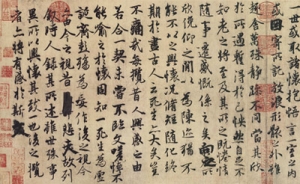 世或取諸懷抱悟言一室之
或因寄所託放浪形骸之外雖
趣舍萬殊靜躁不同當其欣
於所遇蹔得於己怏然自足不
知老之將至及其所之既惓情
隨事遷感慨係之矣向之所
欣俛仰之閒以為陳迹猶不
能不以之興懷況脩短隨化終
期於盡古人云死生亦大矣豈
不痛哉每攬昔人興感之由
若合一契未嘗不臨文嗟悼不
能喻之於懷固知一死生為虛
誕齊彭殤為妄作後之視今
亦由今之視昔悲夫故列
敘時人錄其所述雖世殊事
異所以興懷其致一也後之攬
者亦將有感於斯文